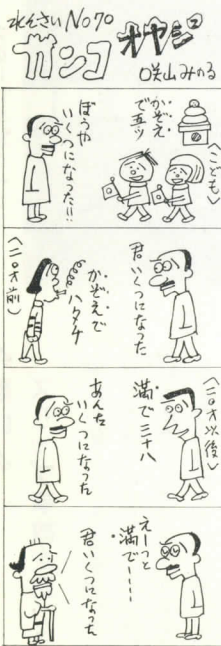 れんさいNo70
ガンコオヤジ
咲山みのる
(こども)
かぞえ
で五ツ
ぼうや
いくつになった!!
君いくつになった
かぞえで
ハタチ
(二〇才前)
(二〇才以後)
満で三十八
あんた
いくつになった
えーっと
満で----
君いくつになった